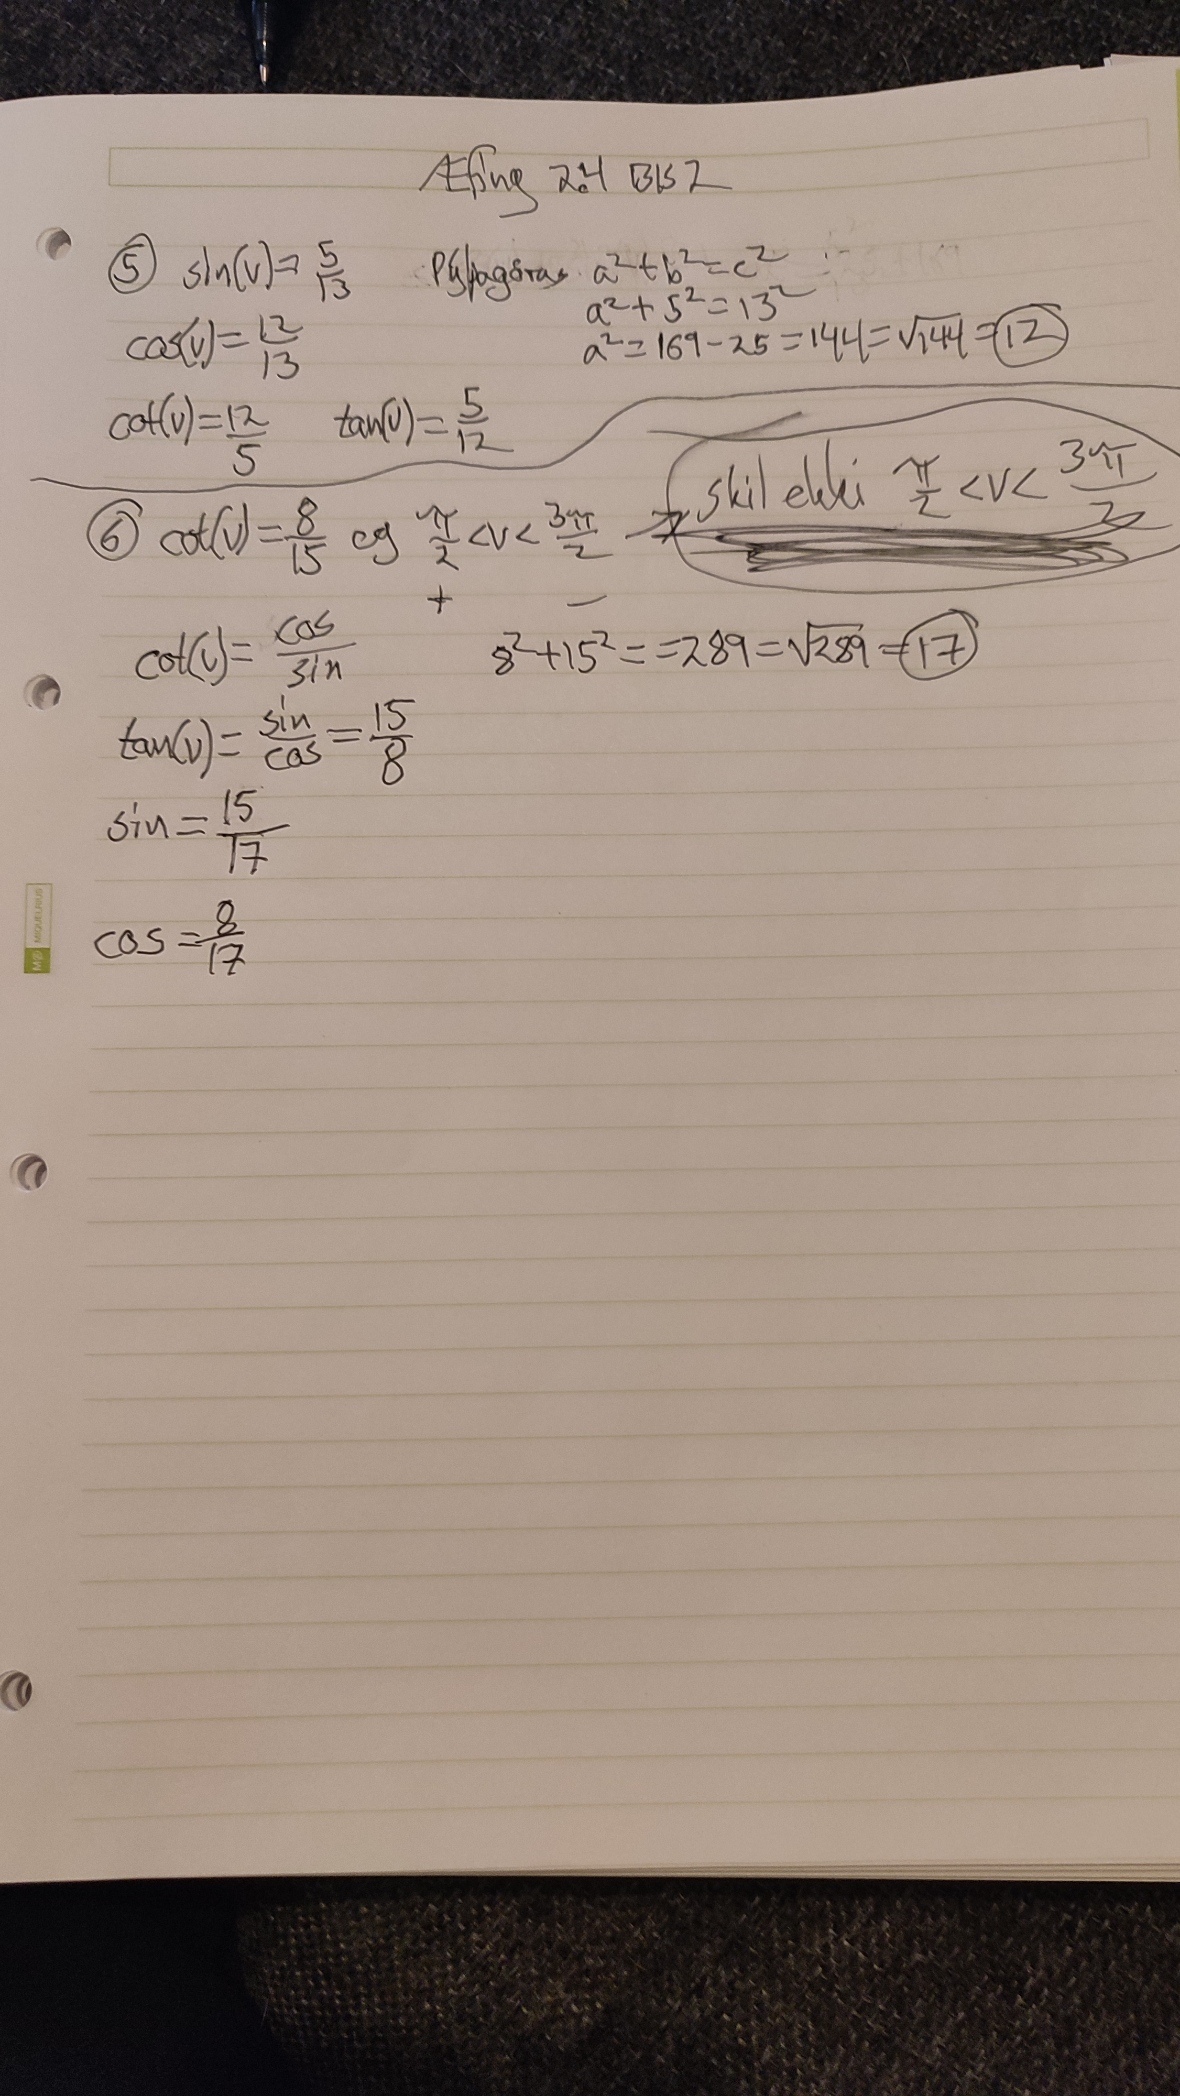 Æfing 2.4 Bls 2
⑤ sin(v)= 5/13 Pýþagóras a²+b²=c²
a²+5²=13²
cos(v)= 12/13 a²=169-25=144=√144=12
cot(v)= 12/5 tan(v)= 5/12
skil ekki π/2 <v< 3π/2
⑥ cot(v)= 8/15 og π/2 <v< 3π/2 →
+ -
cot(v)= cos/sin 8²+15²= =289=√289=17
tan(v)= sin/cos = 15/8
sin= 15/17
cos= 8/17
M® MIQUELRIUS